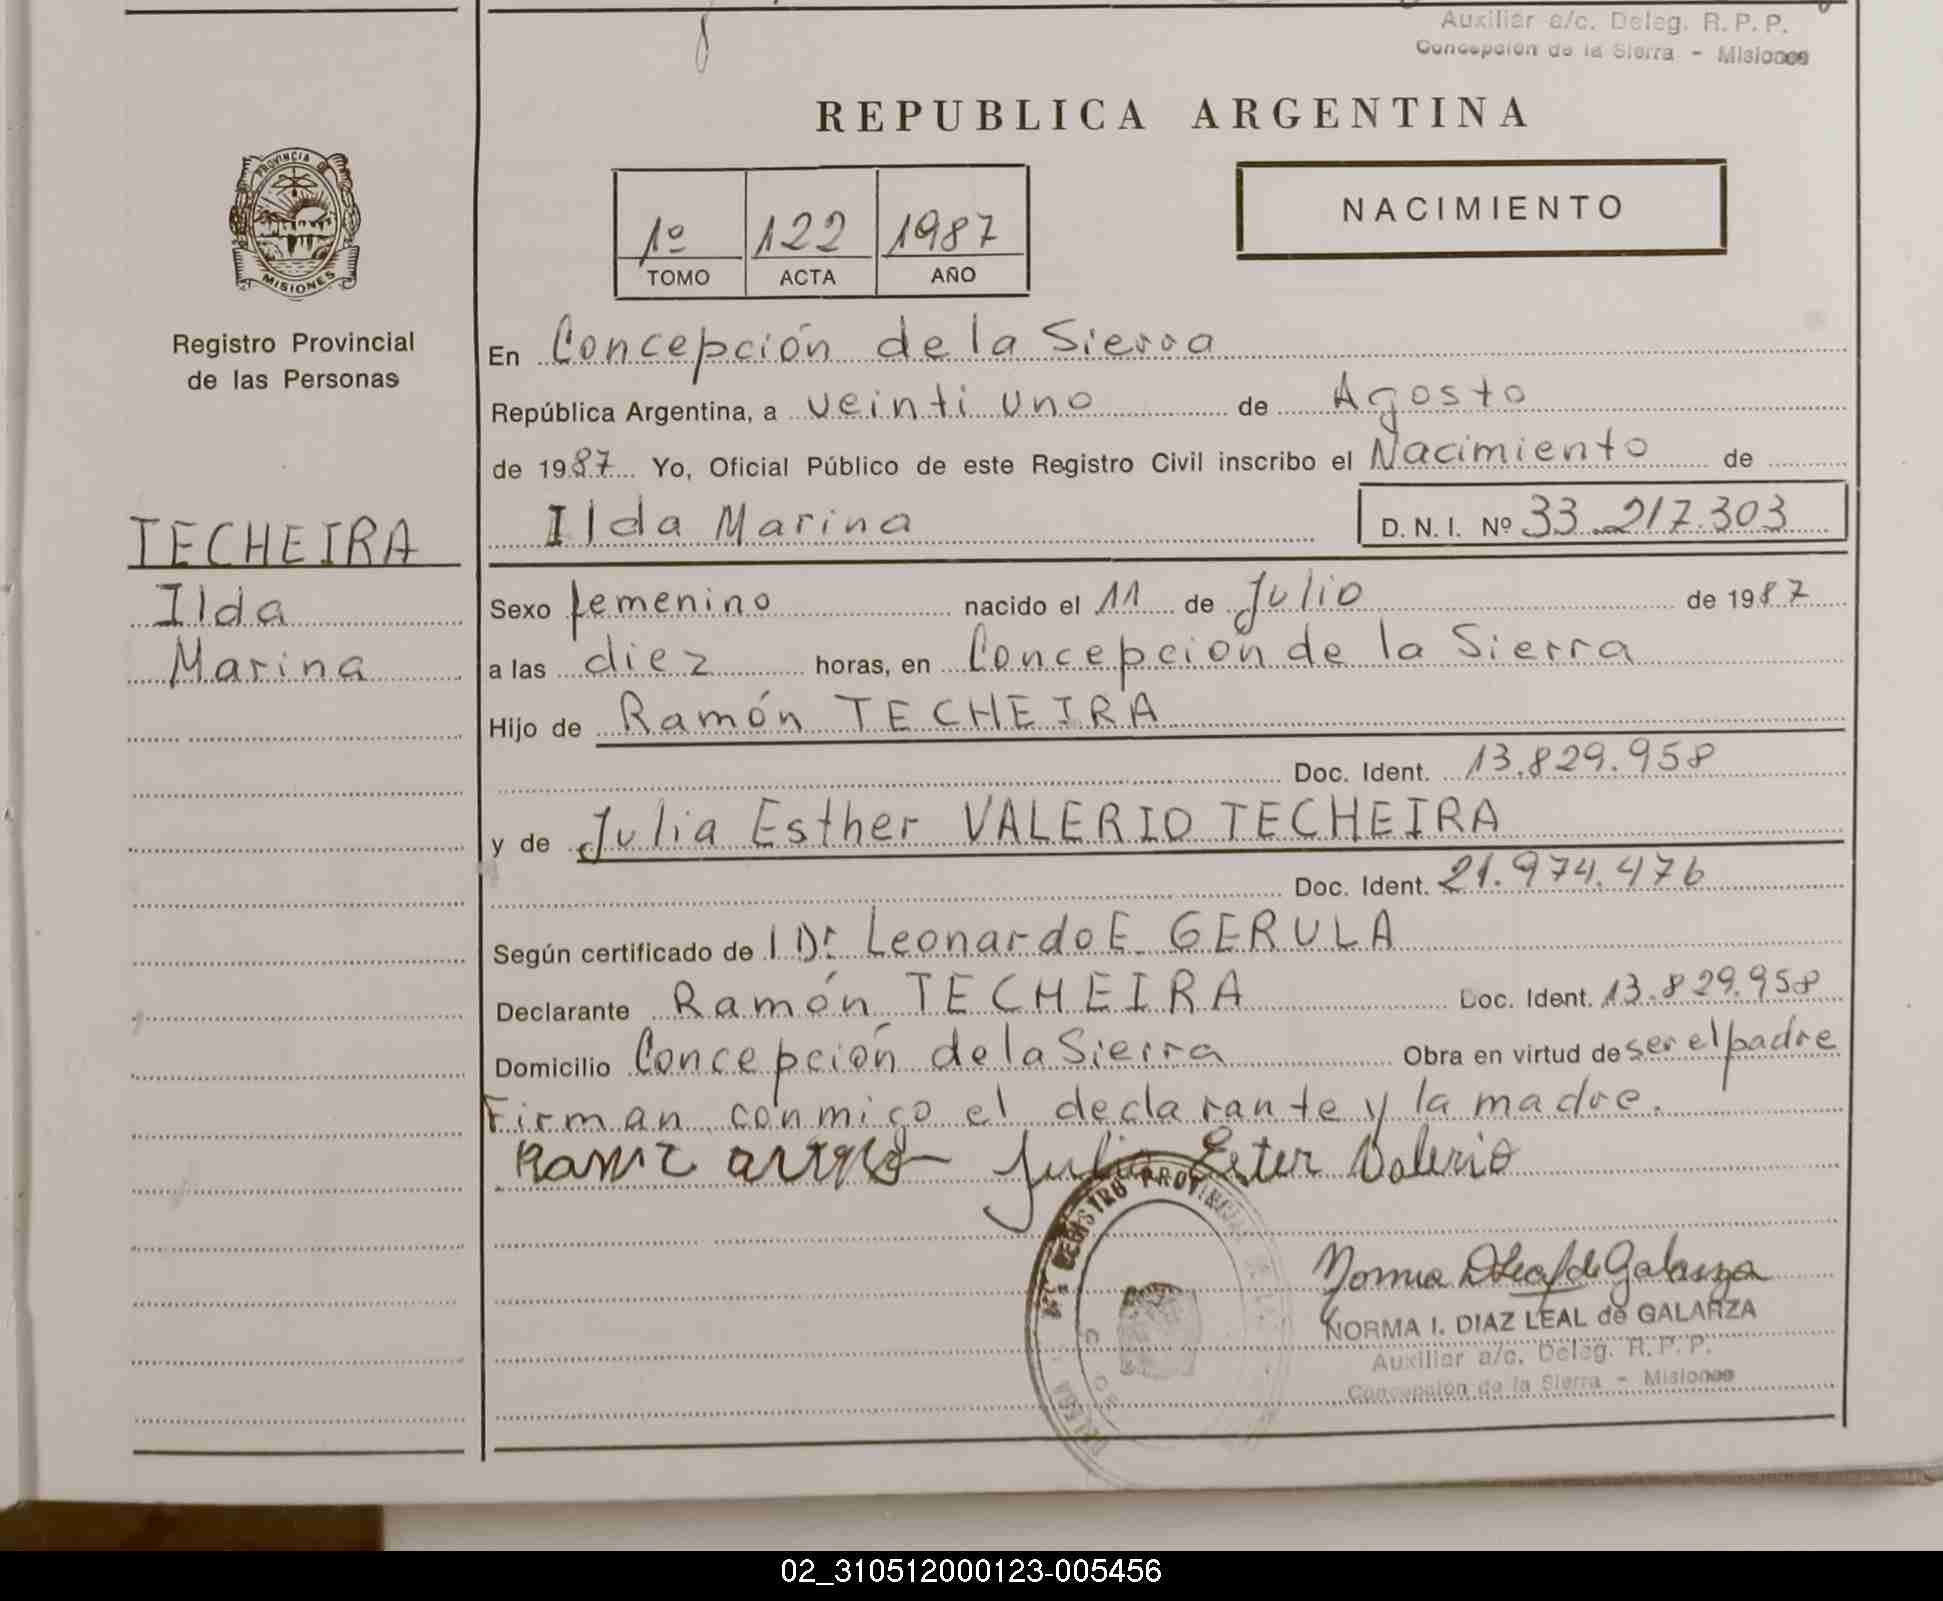 Auxiliar a/c. Deleg. R. P. P.
Concepción de la Sierra - Misiones
REPUBLICA ARGENTINA
PROVINCIA DE
MISIONES
Registro Provincial
de las Personas
1º 122 1987
TOMO ACTA AÑO
NACIMIENTO
En Concepción de la Sierra
República Argentina, a veinti uno de Agosto
de 1987 Yo, Oficial Público de este Registro Civil inscribo el Nacimiento de
Ilda Marina D. N. I. Nº 33.217.303
TECHEIRA
Ilda
Marina
Sexo femenino nacido el 11 de Julio de 1987
a las diez horas, en Concepción de la Sierra
Hijo de Ramón TECHEIRA
Doc. Ident. 13.829.958
y de Julia Esther VALERIO TECHEIRA
Doc. Ident. 21.974.476
Según certificado de l Dr Leonardo E. GERULA
Declarante Ramón TECHEIRA Doc. Ident. 13.829.958
Domicilio Concepción de la Sierra Obra en virtud de ser el padre
Firman conmigo el declarante y la madre.
Julia Ester Valerio
REGISTRO PROVINCIAL
Norma de Galarza
NORMA I. DIAZ LEAL de GALARZA
Auxiliar a/c. Deleg. R. P. P.
Concepción de la Sierra - Misiones
02_310512000123-005456